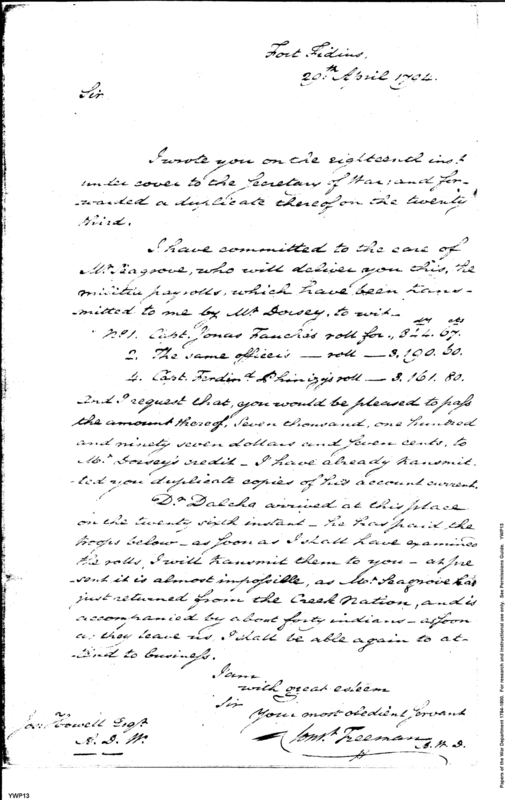 Fort Fidius,
29th April 1794.
Sir
I wrote you on the eighteenth inst.
under cover to the Secretary of War; and for-
warded a duplicate thereof on the twenty
third.
I have committed to the care of
Mr. Seagrove, who will deliver you this, the
militia payrolls, which have been trans-
mitted to me by Mr. Dorsey, to wit-
No. 1. Capt. Jonas Fauche's roll for, 844. 67.
2. The same officer's — roll — 3,190. 60.
4. Capt. Ferdind. Phinizy's roll — 3,161. 80.
And I request that, you would be pleased to pass
the amount thereof, Seven thousand, one hundred
and ninety seven dollars and Seven cents, to
Mr. Dorsey's credit — I have already transmit-
ted you duplicate copies of his account current.
Dr. Dalcho arrived at this place
on the twenty sixth instant — he has paid the
troops below — as soon as I shall have examined
the rolls, I will transmit them to you — at pre-
sent it is almost impossible, as Mr. Seagrove has
just returned from the Creek Nation, and is
accompanied by about forty indians — as soon
as they leave us, I shall be able again to at-
tend to business.
I am
with great esteem
Sir
Your most obedient Servant
Const. Freeman
A. W. D.
Howell Esqr.
A. D. W.
YWP13
Papers of the War Department 1784-1800. For research and instructional use only. See Permissions Guide. YWP13